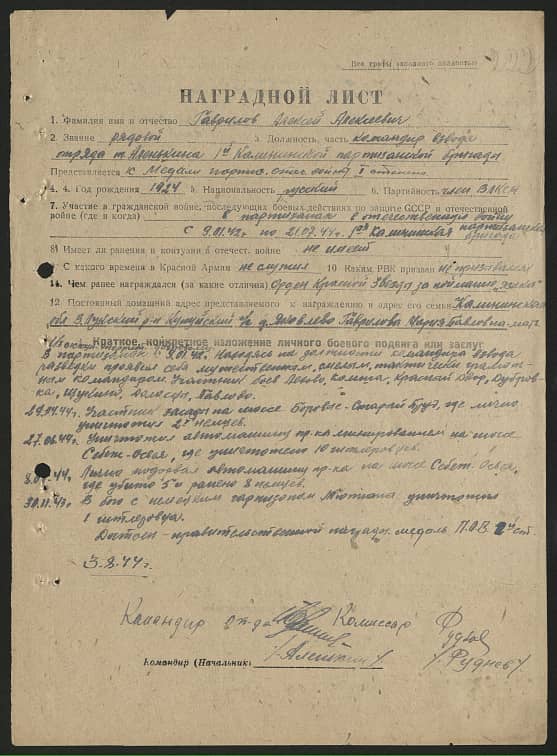 Все графы заполнять полностью
НАГРАДНОЙ ЛИСТ
1. Фамилия имя и отчество Гаврилов Алексей Алексеевич
2. Звание рядовой 3. Должность, часть командир взвода
отряда т. Алешкина 1й Калининской партизанской бригады
Представляется к Медали партиз. отеч. войны I степени
4. Год рождения 1924 5. Национальность русский 6. Партийность член ВЛКСМ
7. Участие в гражданской войне, последующих боевых действиях по защите СССР и отечественной
войне (где и когда) В партизанах в отечественную войну
с 9.01.43г по 21.07.44г. 1я Калининская партизанская бригада
8) Имеет ли ранения и контузии в отечест. войне не имеет
9 С какого времени в Красной Армии не служил 10 Каким РВК призван не призывался
11. Чем ранее награждался (за какие отличия) Орден Красной Звезды за
12 Постоянный домашний адрес представляемого к награждению и адрес его семьи Калининская
обл. В.Лукский р-н с/с д. Яковлево Гаврилова Павловна-мать
Краткое, конкретное изложение личного боевого подвига или заслуг
В партизанах с 9.01.43. Находясь на должности командира взвода
разведки проявил себя мужественным, смелым, тактически грамот-
ным командиром. Участник боев Красный Двор, Дубров-
ка, Щукино, Павлово.
29.04.44г. Участник засады на шоссе Боровые - Старый где лично
уничтожил 2х немцев.
27.06.44г. Уничтожил автомашину пр-ка минированием на шоссе
Себеж-Освея, где уничтожено 10 гитлеровцев.
44г. Лично подорвал автомашину пр-ка на шоссе Себеж-Освея,
где убито 5 и ранено 8 немцев.
30.11.43г. В бою с немецким гарнизоном уничтожил
1 гитлеровца.
Достоин - правительственной награды медаль П.О.В. 2й ст.
3.8.44г.
Командир отр-да Комиссар
/Алешкин/ /Руднев/
Командир (Начальник)